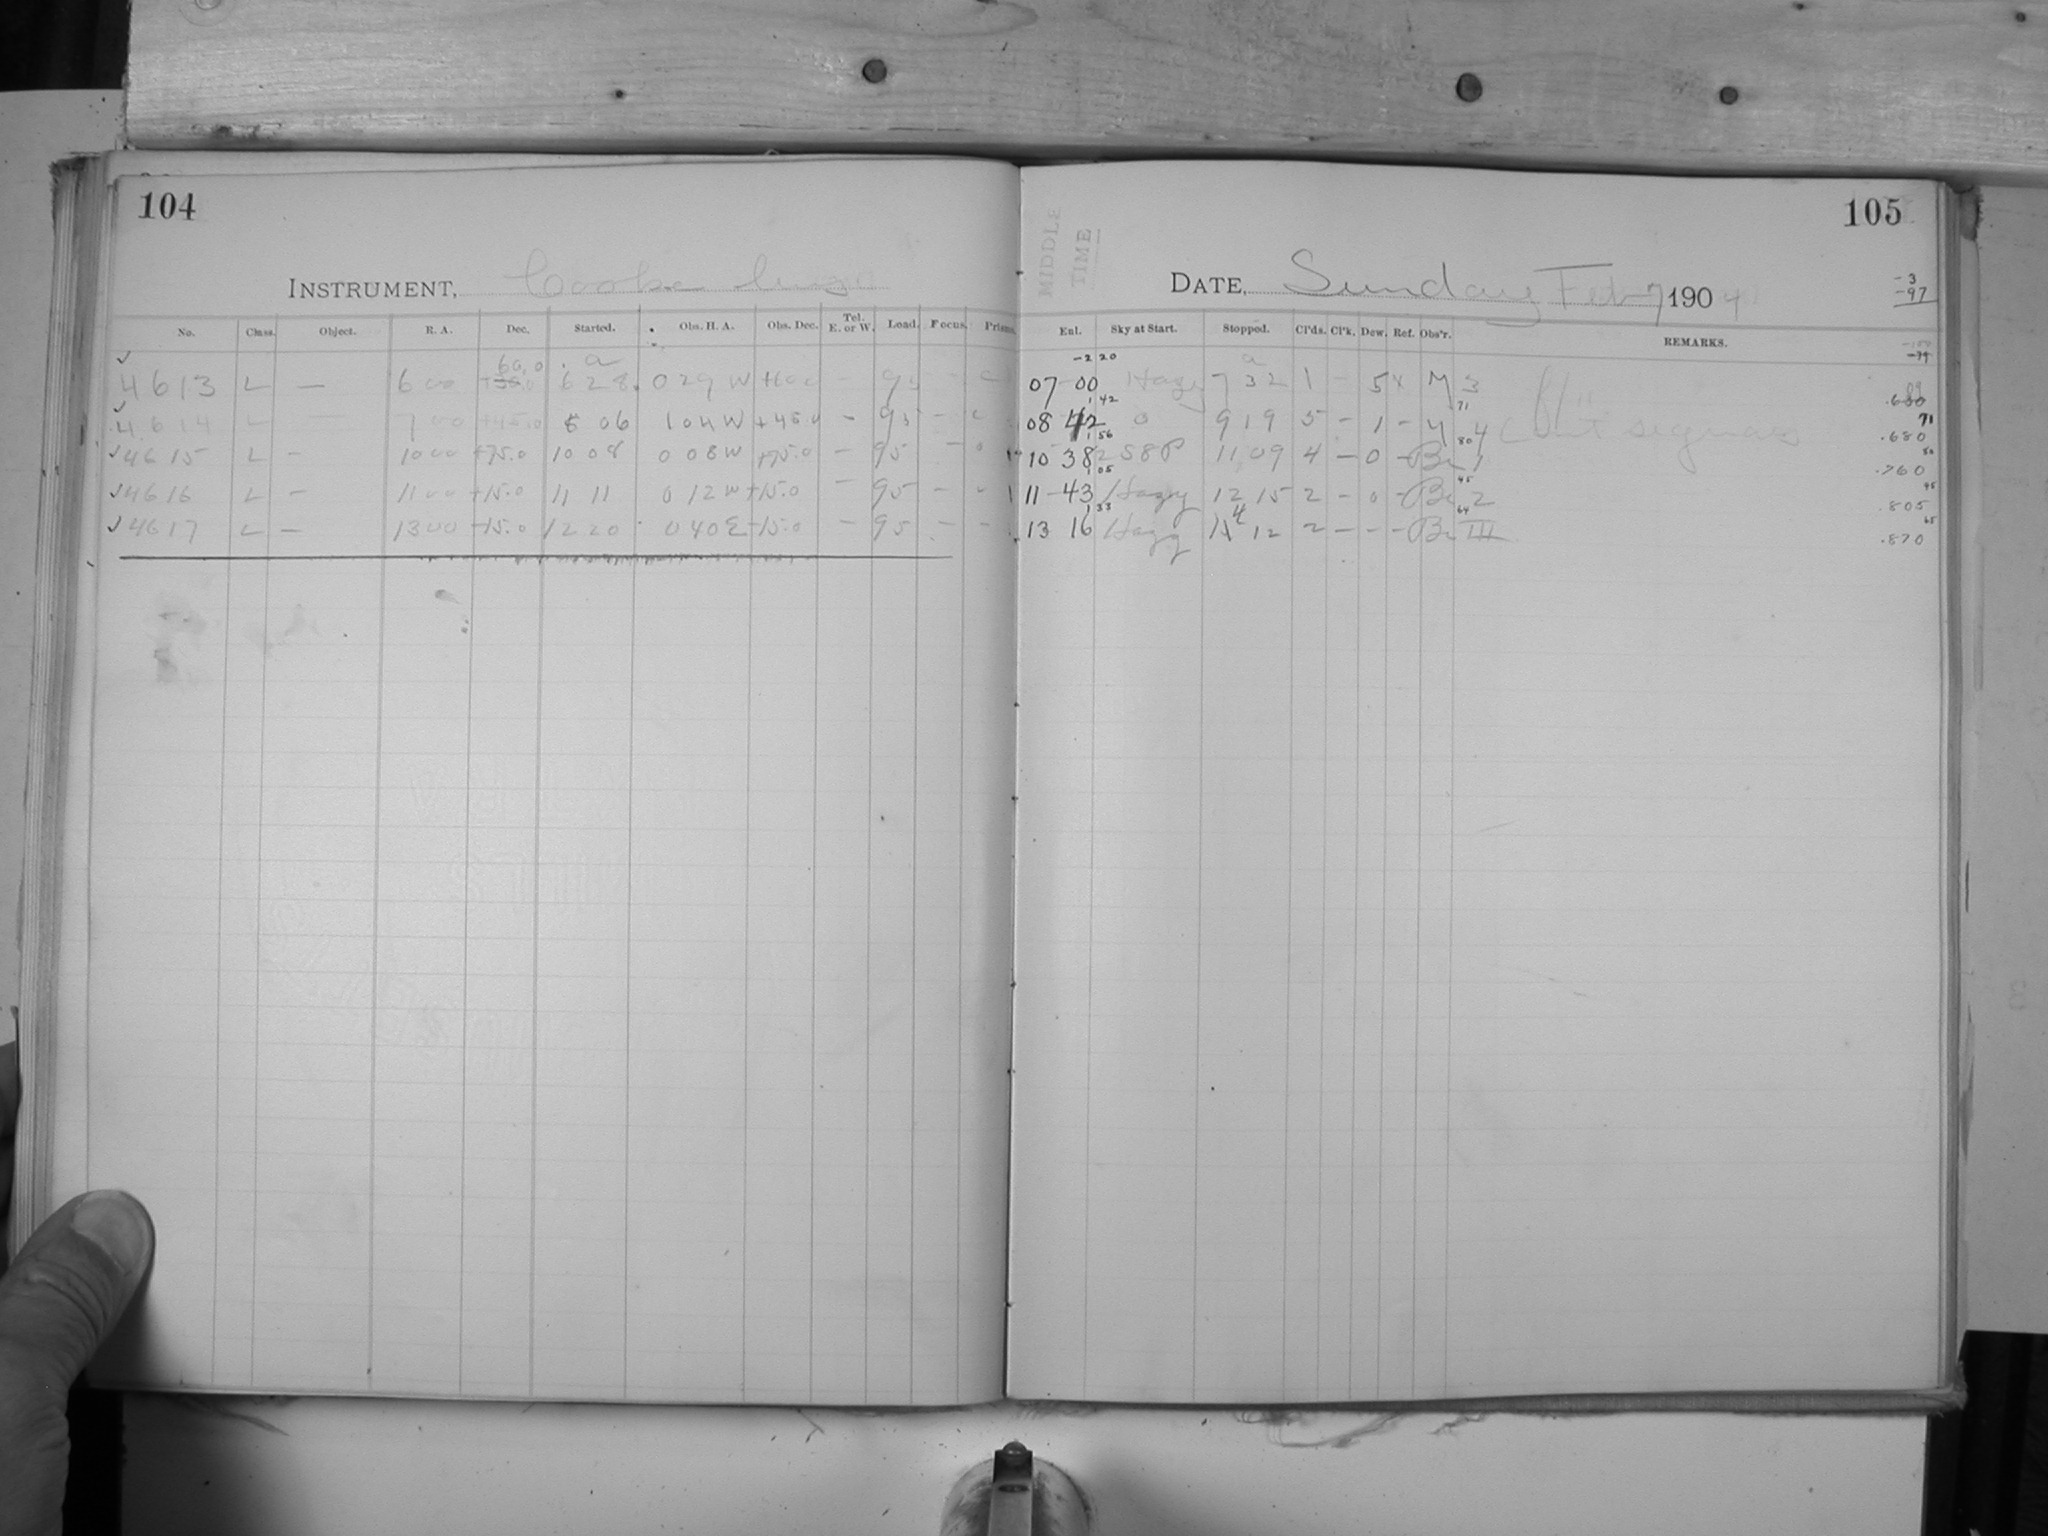 104
INSTRUMENT, Cooke lens
No. Class. Object. R. A. Dec. Started. Obs. H. A. Obs. Dec. Tel. E. or W. Load. Focus. Prisms.
60.0 a
4613 L — 6 00 6 28 0 29 W — —
4614 L 7 00 +45.0 8 06 1 04 W +45.0 — 95 —
4615 L — 10 00 +75.0 10 08 0 08 W +75.0 — 95 —
4616 L — 11 00 +15.0 11 11 0 12 W +15.0 — 95 —
4617 L — 13 00 -15.0 12 20 0 40 E -15.0 — 95 — —
105
MIDDLE TIME
DATE, Sunday Feb 7 1904
-3
-97
Enl. Sky at Start. Stopped. Cl'ds. Cl'k. Dew. Ref. Obs'r. REMARKS.
-2 20 a
07-00 Hazy 7 32 1 — 5 x M 3
1 42 71
08 42 0 9 19 5 — 1 — M 4 .680
1 56 80
10 38 2 S8P 11 09 4 — 0 — Br 1 .760
1 05 45
11-43 Hazy 12 15 2 — 0 — Br 2 .805
1 33 64
13 16 Hazy 14 12 2 — — — Br III .870